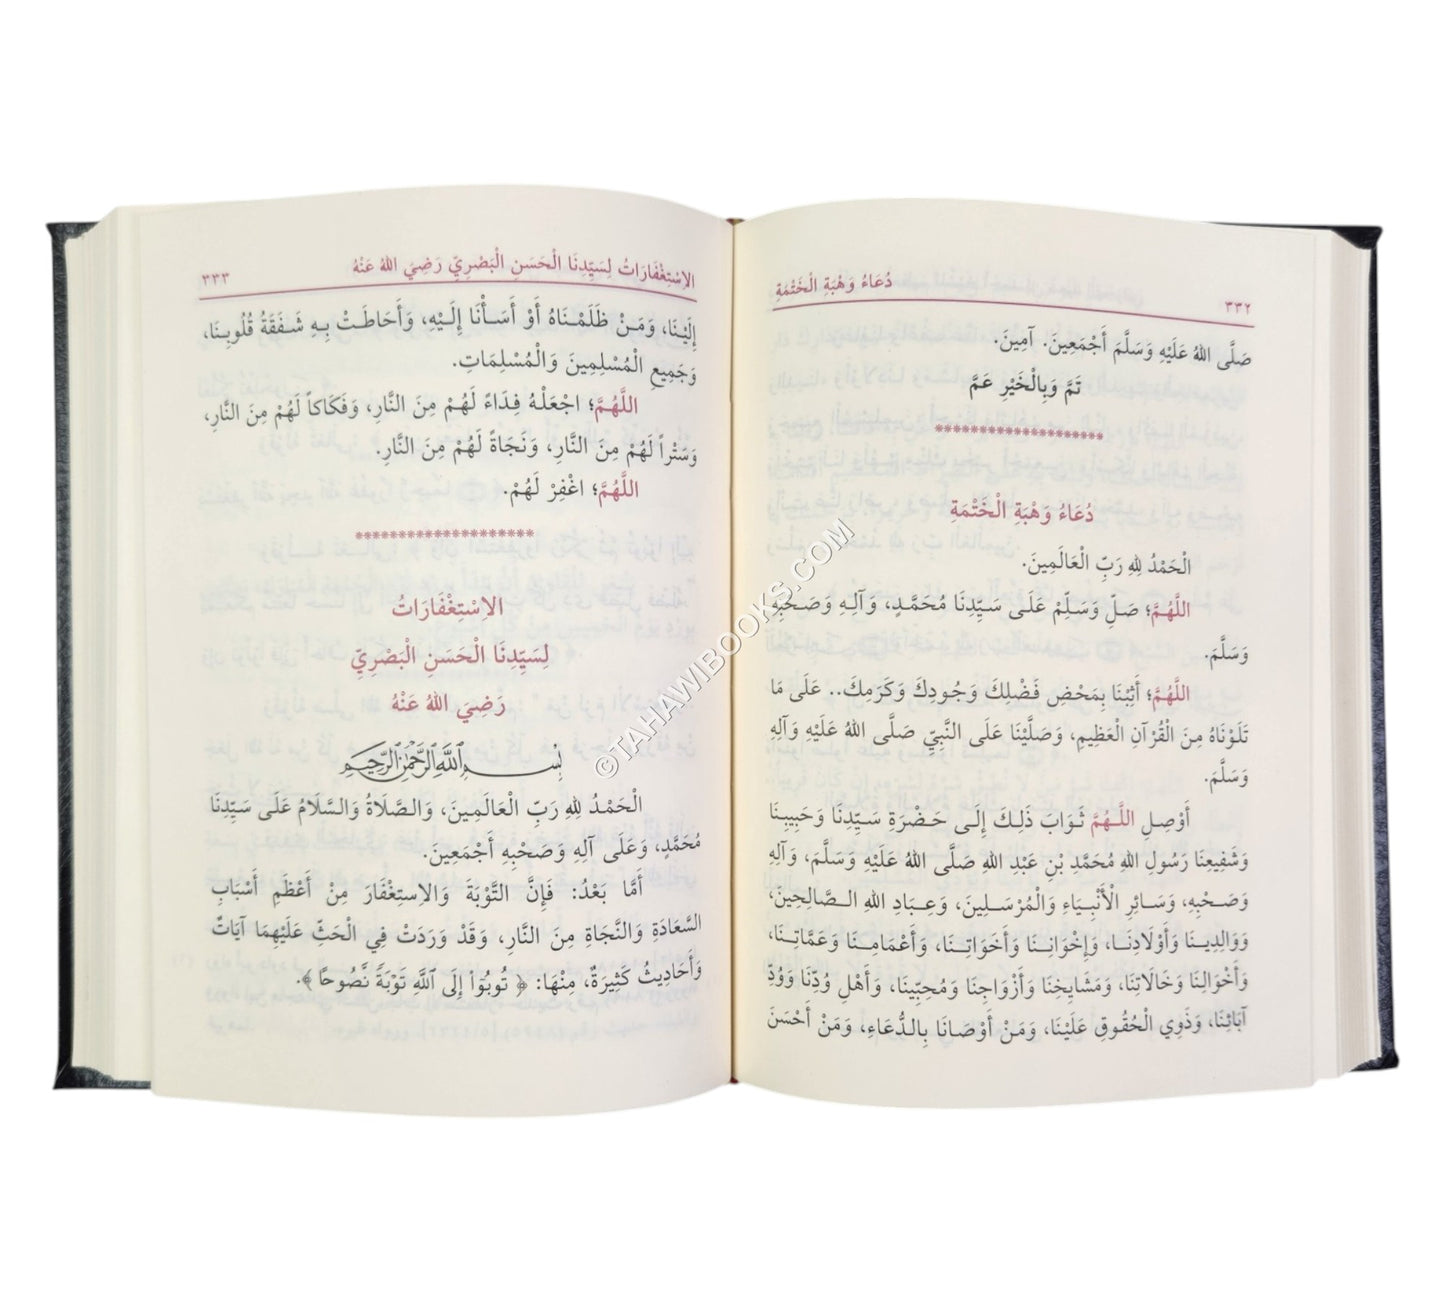 ٣٣٢ دُعَاءُ وَهْبَةِ الْخَتْمَةِ
صَلَّى اللهُ عَلَيْهِ وَسَلَّمَ أَجْمَعِينَ. آمِينَ.
تَمَّ وَبِالْخَيْرِ عَمَّ
********************
دُعَاءُ وَهْبَةِ الْخَتْمَةِ
الْحَمْدُ لِلهِ رَبِّ الْعَالَمِينَ.
اللَّهُمَّ؛ صَلِّ وَسَلِّمْ عَلَى سَيِّدِنَا مُحَمَّدٍ، وَآلِهِ وَصَحْبِهِ
وَسَلَّمَ.
اللَّهُمَّ؛ أَثِبْنَا بِمَحْضِ فَضْلِكَ وَجُودِكَ وَكَرَمِكَ.. عَلَى مَا
تَلَوْنَاهُ مِنَ الْقُرْآنِ الْعَظِيمِ، وَصَلَّيْنَا عَلَى النَّبِيِّ صَلَّى اللهُ عَلَيْهِ وَآلِهِ
وَسَلَّمَ.
أَوْصِلِ اللَّهُمَّ ثَوَابَ ذَلِكَ إِلَى حَضْرَةِ سَيِّدِنَا وَحَبِيبِنَا
وَشَفِيعِنَا رَسُولِ اللهِ مُحَمَّدِ بْنِ عَبْدِ اللهِ صَلَّى اللهُ عَلَيْهِ وَسَلَّمَ، وَآلِهِ
وَصَحْبِهِ، وَسَائِرِ الْأَنْبِيَاءِ وَالْمُرْسَلِينَ، وَعِبَادِ اللهِ الصَّالِحِينَ،
وَوَالِدِينَا وَأَوْلَادِنَا، وَإِخْوَانِنَا وَأَخَوَاتِنَا، وَأَعْمَامِنَا وَعَمَّاتِنَا،
وَأَخْوَالِنَا وَخَالَاتِنَا، وَمَشَايِخِنَا وَأَزْوَاجِنَا وَمُحِبِّينَا، وَأَهْلِ وُدِّنَا وَوُدِّ
آبَائِنَا، وَذَوِي الْحُقُوقِ عَلَيْنَا، وَمَنْ أَوْصَانَا بِالدُّعَاءِ، وَمَنْ أَحْسَنَ
الِاسْتِغْفَارَاتُ لِسَيِّدِنَا الْحَسَنِ الْبَصْرِيِّ رَضِيَ اللهُ عَنْهُ ٣٣٣
إِلَيْنَا، وَمَنْ ظَلَمْنَاهُ أَوْ أَسَأْنَا إِلَيْهِ، وَأَحَاطَتْ بِهِ شَفَقَةُ قُلُوبِنَا،
وَجَمِيعِ الْمُسْلِمِينَ وَالْمُسْلِمَاتِ.
اللَّهُمَّ؛ اجْعَلْهُ فِدَاءً لَهُمْ مِنَ النَّارِ، وَفَكَاكاً لَهُمْ مِنَ النَّارِ،
وَسَتْراً لَهُمْ مِنَ النَّارِ، وَنَجَاةً لَهُمْ مِنَ النَّارِ.
اللَّهُمَّ؛ اغْفِرْ لَهُمْ.
********************
الِاسْتِغْفَارَاتُ
لِسَيِّدِنَا الْحَسَنِ الْبَصْرِيِّ
رَضِيَ اللهُ عَنْهُ
بِسْمِ ٱللَّهِ ٱلرَّحْمَٰنِ ٱلرَّحِيمِ
الْحَمْدُ لِلهِ رَبِّ الْعَالَمِينَ، وَالصَّلَاةُ وَالسَّلَامُ عَلَى سَيِّدِنَا
مُحَمَّدٍ، وَعَلَى آلِهِ وَصَحْبِهِ أَجْمَعِينَ.
أَمَّا بَعْدُ: فَإِنَّ التَّوْبَةَ وَالِاسْتِغْفَارَ مِنْ أَعْظَمِ أَسْبَابِ
السَّعَادَةِ وَالنَّجَاةِ مِنَ النَّارِ، وَقَدْ وَرَدَتْ فِي الْحَثِّ عَلَيْهِمَا آيَاتٌ
وَأَحَادِيثُ كَثِيرَةٌ، مِنْهَا: ﴿ تُوبُوٓا۟ إِلَى ٱللَّهِ تَوْبَةً نَّصُوحًا ﴾.
©TAHAWIBOOKS.COM